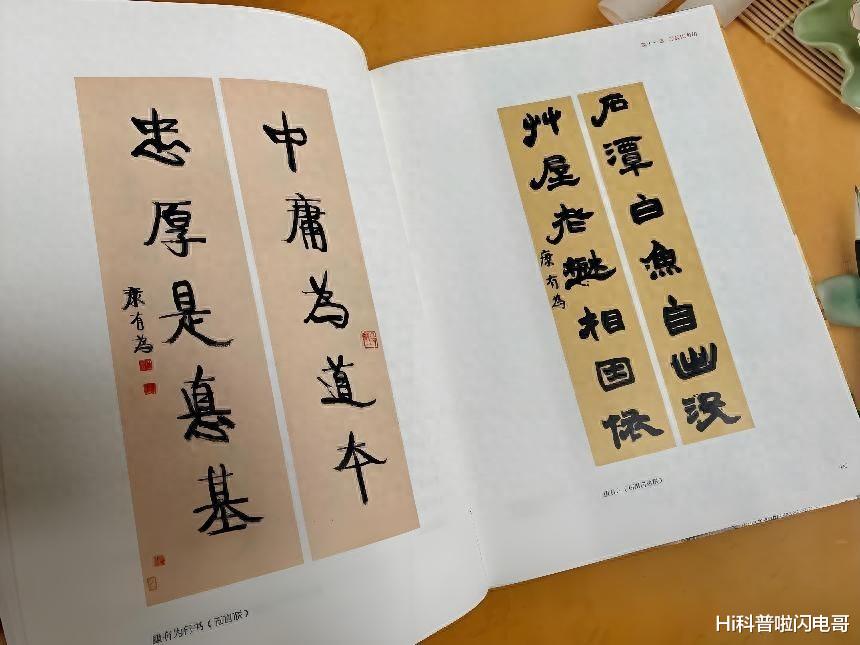 中庸為道本
忠厚是悳基
康有為
康有为行书（五言联）
石潭白漁自出没
艸屋老 相因依
康有為
Hi科普啦闪电哥